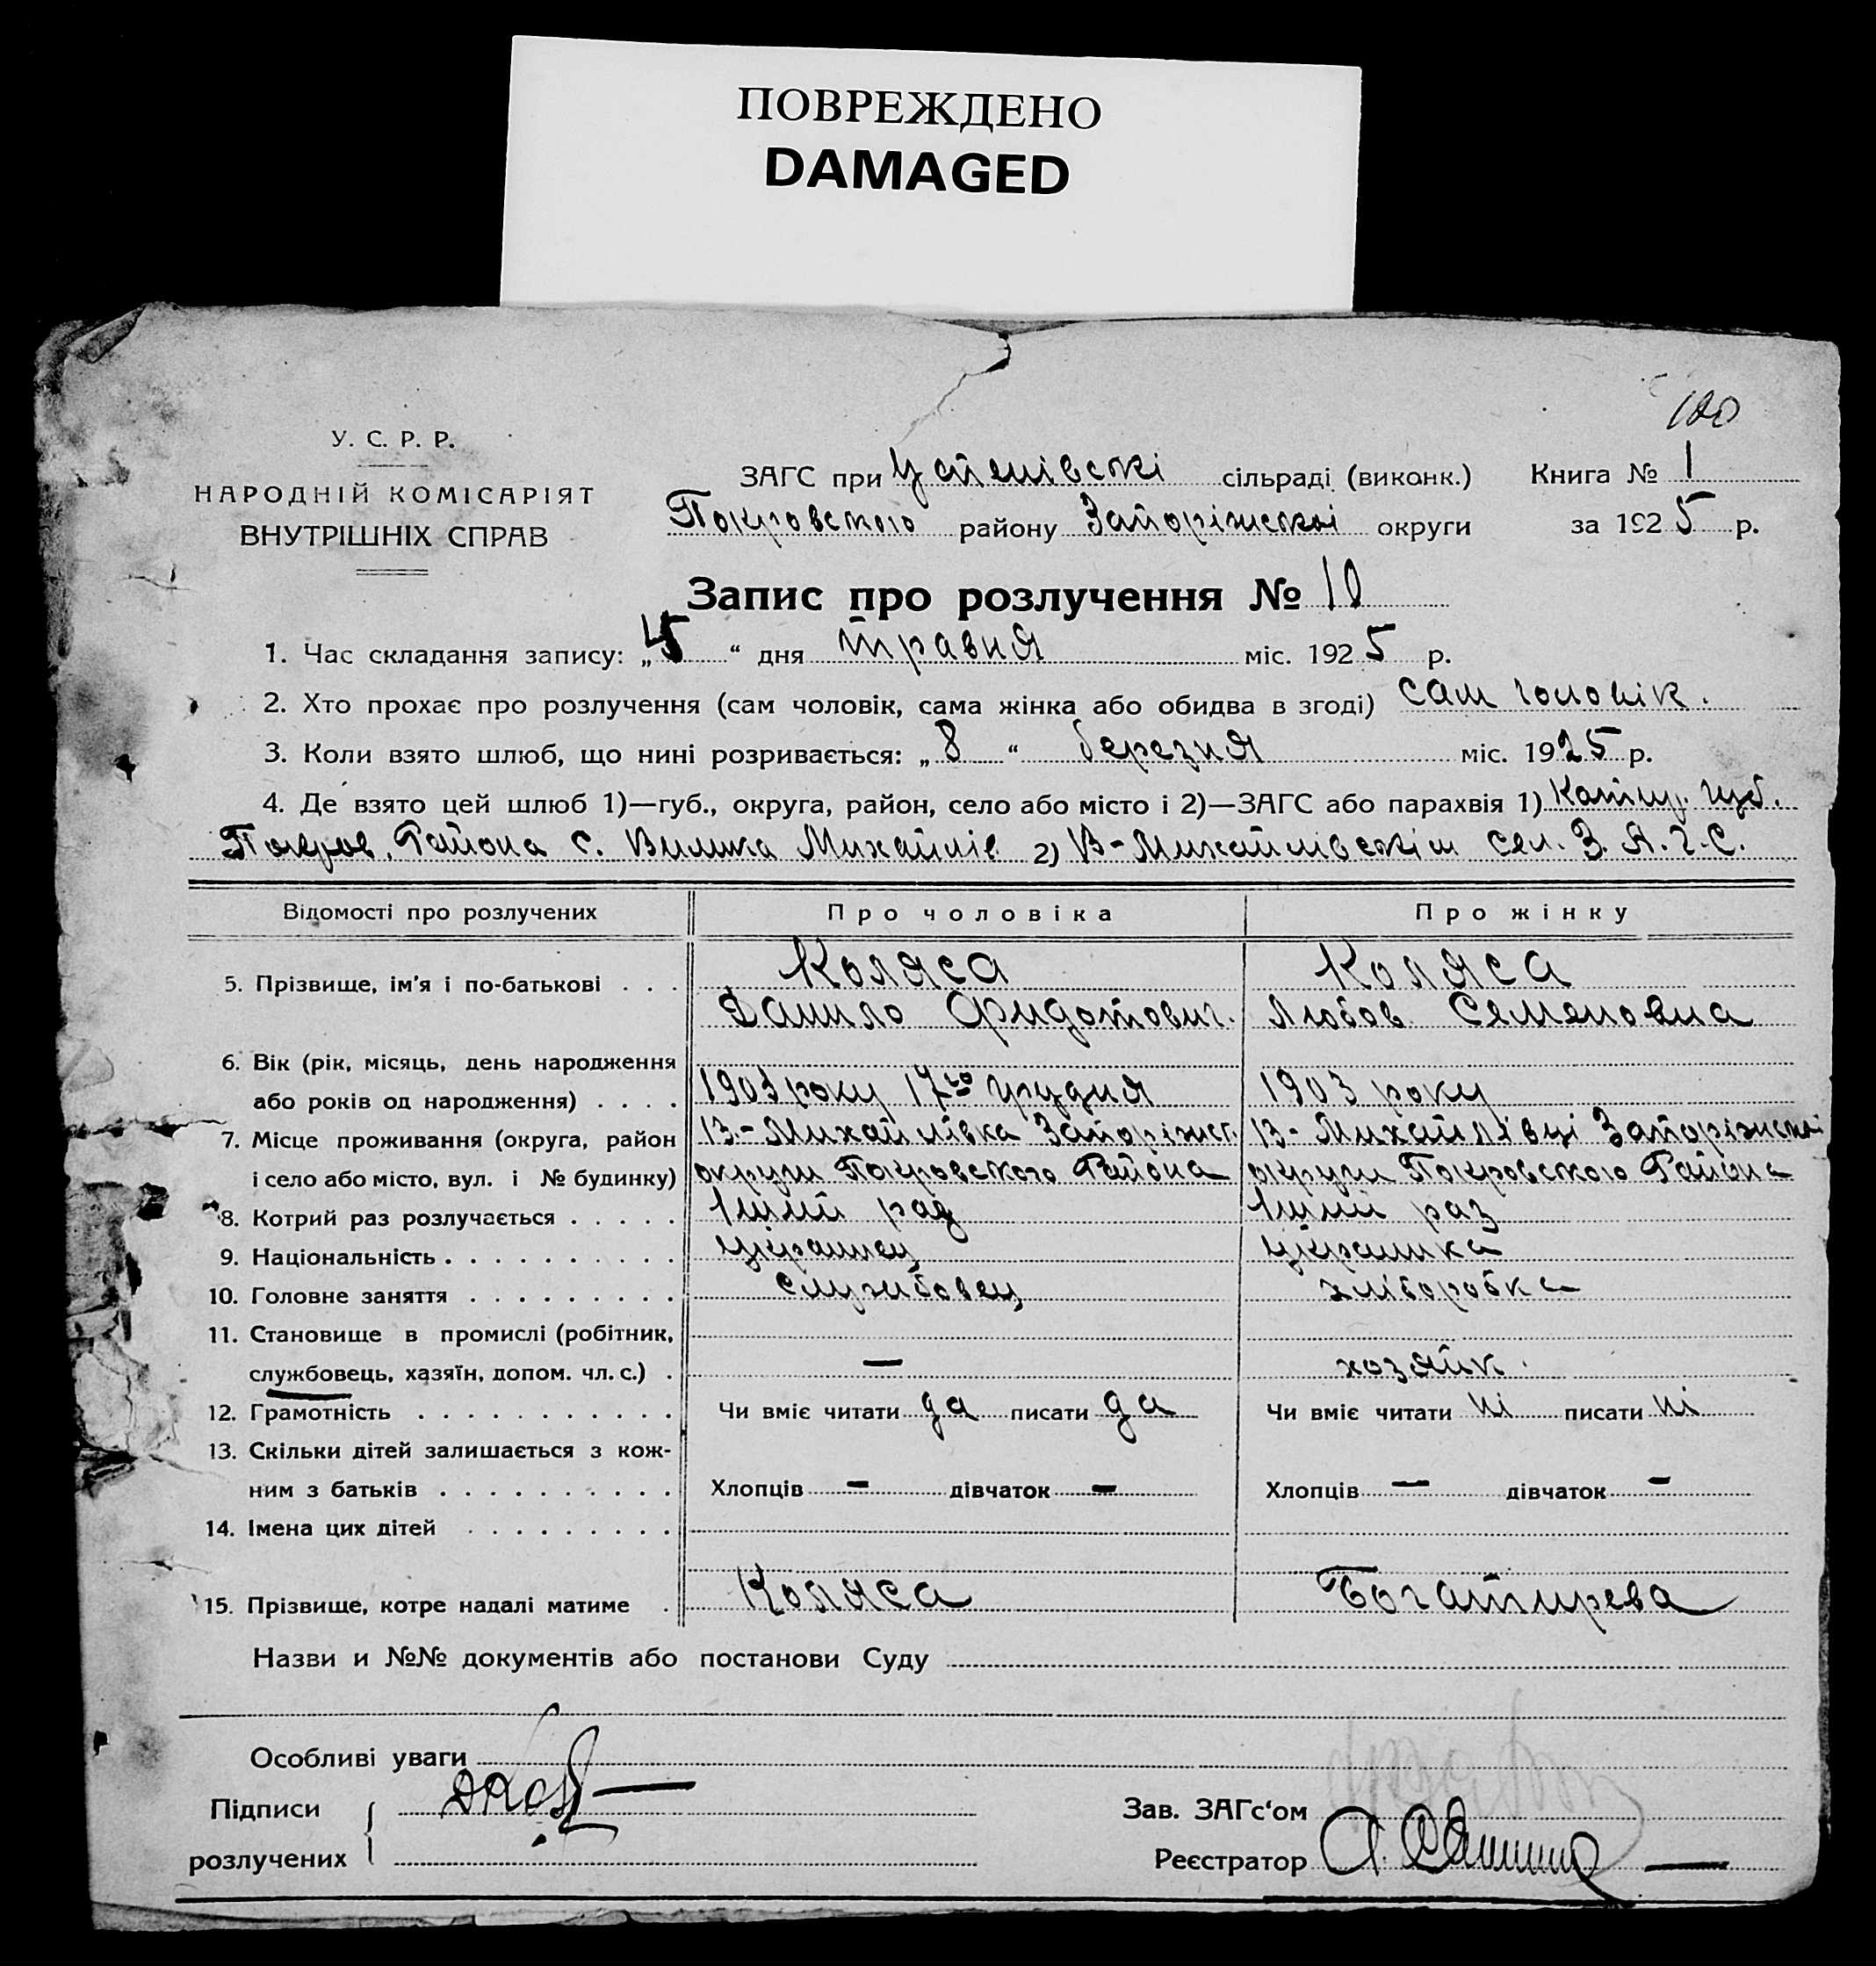 ПОВРЕЖДЕНО
DAMAGED
100
У. С. Р. Р.
НАРОДНІЙ КОМІСАРІЯТ
ВНУТРІШНІХ СПРАВ
ЗАГС при сільраді (виконк.) Книга № 1
Покровського району Запоріжськоі округи за 1925 р.
Запис про розлучення № 10
1. Час складання запису: „5“ дня травня міс. 1925 р.
2. Хто прохає про розлучення (сам чоловік, сама жінка або обидва в згоді) сам чоловік.
3. Коли взято шлюб, що нині розривається: „8“ березня міс. 1925 р.
4. Де взято цей шлюб 1)—губ., округа, район, село або місто і 2)—ЗАГС або парахвія 1) губ.
Покров. Района с. Михайлів 2) В-Михайлівскім сел. З. А. Г. С.
Відомості про розлучених Про чоловіка Про жінку
5. Прізвище, ім'я і по-батькові . . . Коляса Коляса
Данило Фидотович. Любов Семеновна
6. Вік (рік, місяць, день народження
або років од народження) . . . . 1903 року 17го грудня 1903 року
7. Місце проживання (округа, район В.-Михайлівка Запоріжст. В- Михайлівці Запоріжськоі
і село або місто, вул. і № будинку) округи Покровського Района округи Покровського Района
8. Котрий раз розлучається . . . . . 1ший раз 1ший раз
9. Національність . . . . . . . . . . Українец Українка
10. Головне заняття . . . . . . . . . службовец хліборобка
11. Становище в промислі (робітник,
службовець, хазяїн, допом. чл. с.) . — хозяйк.
12. Грамотність . . . . . . . . . . . Чи вміє читати да писати да Чи вміє читати ні писати ні
13. Скільки дітей залишається з кож-
ним з батьків . . . . . . . . . . Хлопців — дівчаток — Хлопців — дівчаток —
14. Імена цих дітей . . . . . . . . .
15. Прізвище, котре надалі матиме . Коляса Богатирева
Назви и №№ документів або постанови Суду
Особливі уваги
Підписи Зав. ЗАГс‘ом
розлучених Реєстратор